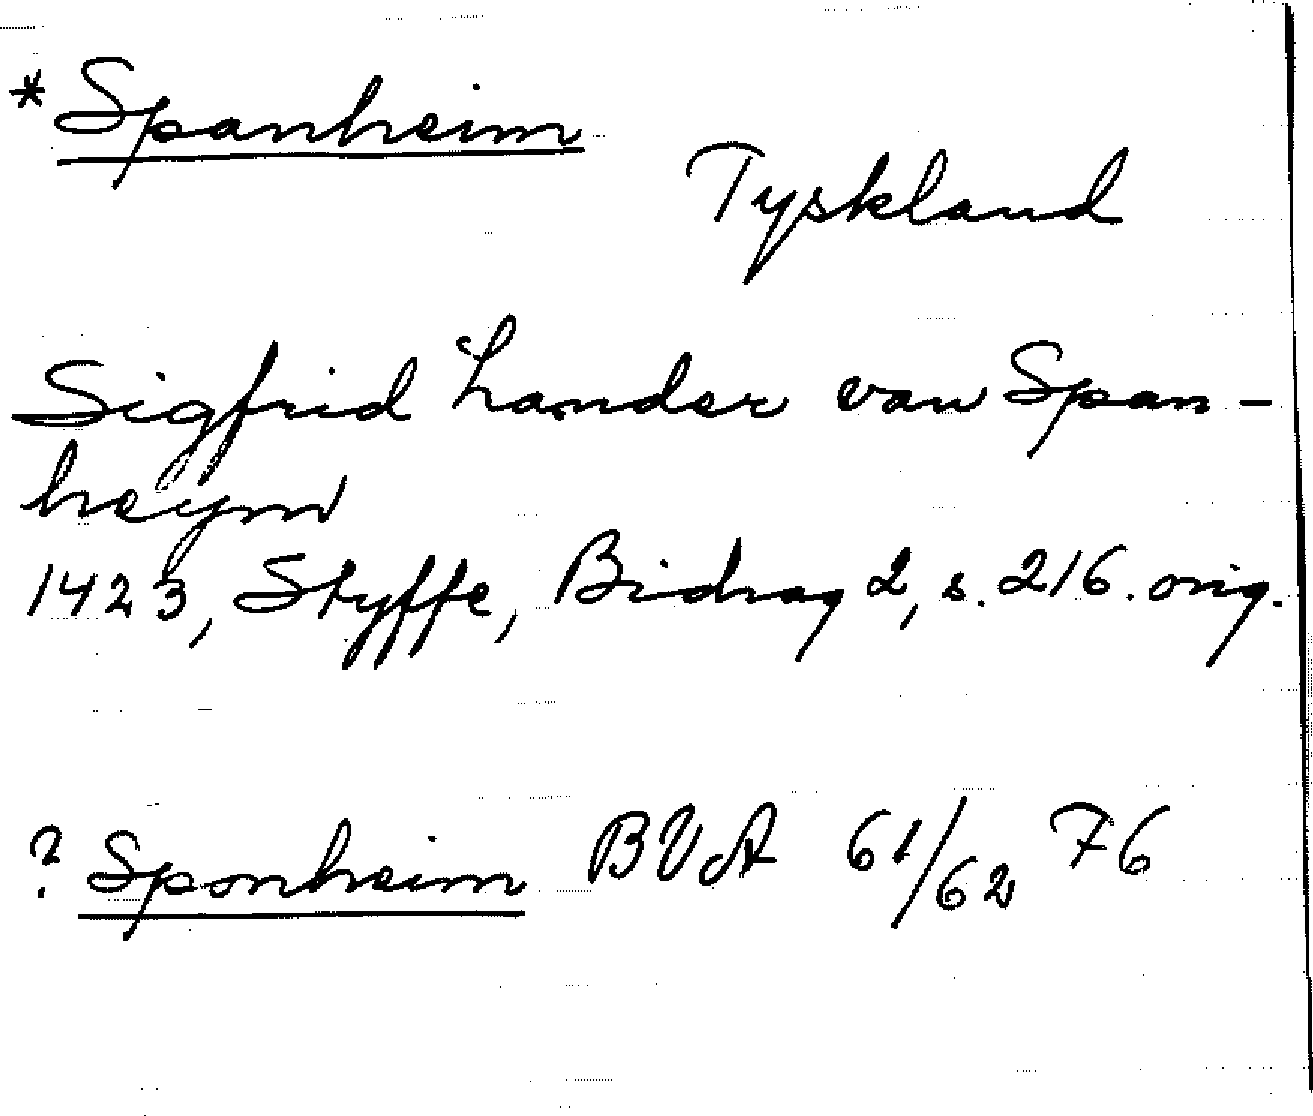 * Spanheim
Tyskland
Sigfrid Lander van Span-
heym
1423, Styffe, Bidrag 2, s. 216. orig.
? Sponheim BVA 61/62 76